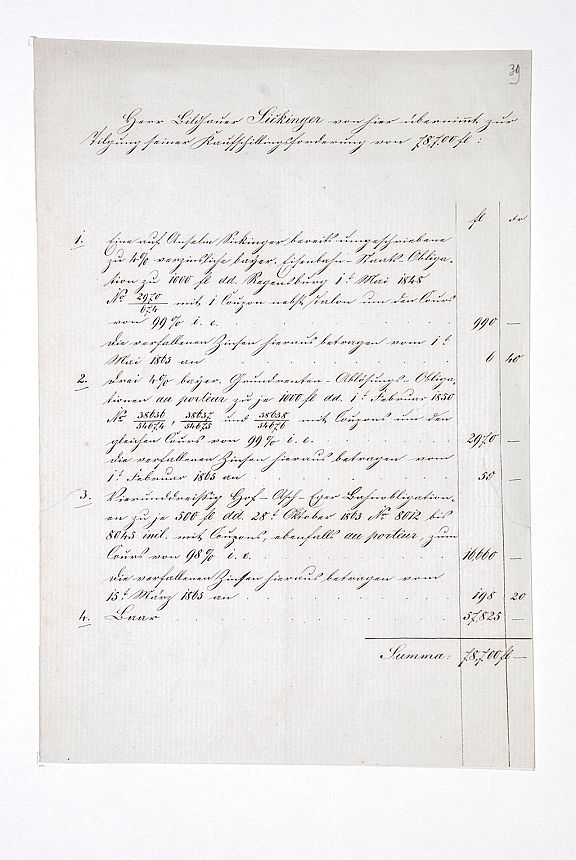 39
Herr Bildhauer Sickinger von hier übernimmt zur
Tilgung seiner Kaufschillingsforderung von 78,700 fl:
fl xr
1. Eine auf Anselm Sickinger bereits umgeschriebene
zu 4% verzinsliche bayer. Eisenbahn-Staats-Obliga-
tion zu 1000 fl dd. Regensburg 1t Mai 1848
No 2970/674 mit 1 Coupon nebst Talon um den Cours
von 99% i. e. 990 —
die verfallenen Zinsen hieraus betragen vom 1t
Mai 1865 an 6 40
2. Drei 4% bayer. Grundrenten-Ablösungs-Obliga-
tionen au porteur zu je 1000 fl dd. 1t Februar 1850
No 38636/54674, 38637/54675 und 38638/54676 mit Coupons um den
gleichen Cours von 99% i. e. 2970 —
die verfallenen Zinsen hieraus betragen vom
1t Februar 1865 an 50 —
3. Vierunddreißig Hof-Asch-Eger Bahnobligation-
en zu je 500 fl dd. 28t Oktober 1863 No 8012 bis
8045 incl. mit Coupons, ebenfalls au porteur, zum
Cours von 98% i. e. 16,660 —
die verfallenen Zinsen hieraus betragen vom
15t März 1865 an 198 20
4. Baar 57,825 —
Summa: 78,700 fl —